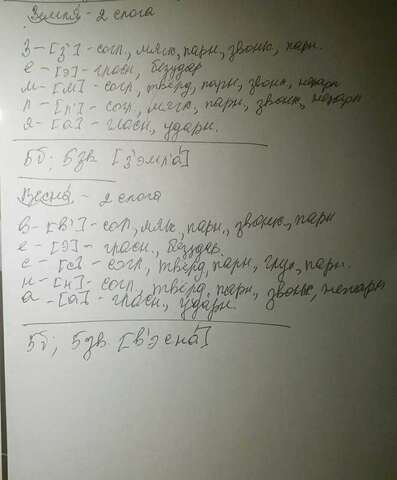 Земля - 2 слога
З - [з'] - согл, мягк, парн, звонк, парн.
е - [э] - гласн, безудар
м - [м] - согл, тверд, парн, звонк, непарн
л - [л'] - согл, мягк, парн, звонк, непарн
я - [а] - гласн, ударн.
5б; 5зв [з'эмл'а́]
Весна́ - 2 слога
в - [в'] - согл, мяк, парн, звонк, парн
е - [э] - гласн., безудар.
с - [с] - согл, тверд, парн, глух, парн.
н - [н] - согл, тверд, парн, звонк, непарн
а - [а] - гласн, ударн.
5б; 5зв [в'эсна́]